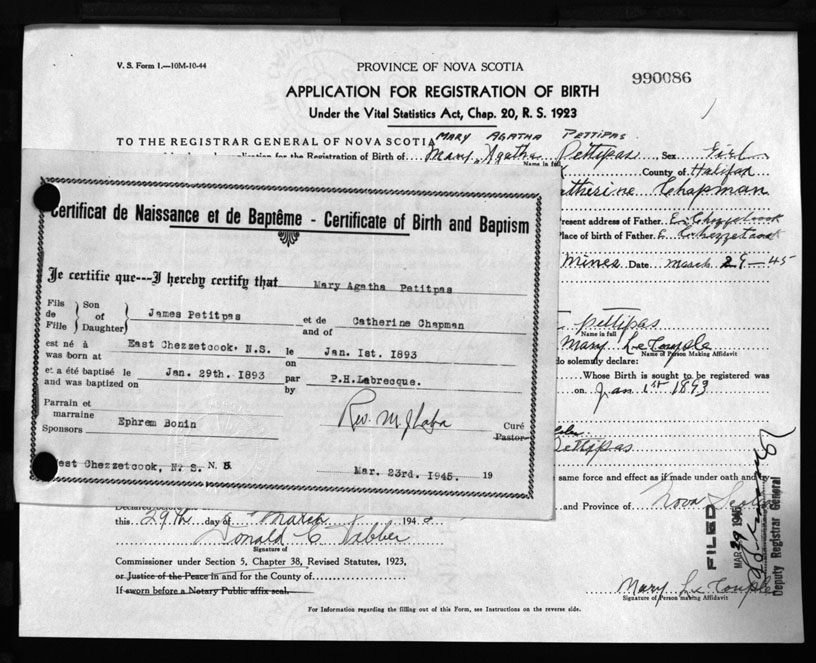 V. S. Form 1.—10M-10-44
PROVINCE OF NOVA SCOTIA
990086
APPLICATION FOR REGISTRATION OF BIRTH
Under the Vital Statistics Act, Chap. 20, R. S. 1923
MARY AGATHA PETTIPAS
TO THE REGISTRAR GENERAL OF NOVA SCOTIA
for the Registration of Birth of Mary Agatha Pettipas, Sex Girl
Name in full
County of Halifax
Catherine Chapman
Present address of Father E. Chezzetcook
Place of birth of Father E. Chezzetcook
Mines Date March 29-45
Pettipas
Name in full
Mary LeCouple
Name of Person Making Affidavit
do solemnly declare:
Whose Birth is sought to be registered was
on Jan 1st 1893
Pettipas
same force and effect as if made under oath and by
and Province of Nova Scotia
Certificat de Naissance et de Baptême - Certificate of Birth and Baptism
Je certifie que---I hereby certify that Mary Agatha Petitpas
Fils Son
de of James Petitpas et de Catherine Chapman
Fille Daughter and of
est né à East Chezzetcook. N.S. le Jan. 1st. 1893
was born at on
et a été baptisé le Jan. 29th. 1893 par P.H.Labrecque.
and was baptized on by
Parrain et
marraine Ephrem Bonin
Sponsors
Rev. M. J. Laba Curé
Pastor
West Chezzetcook, N. S. N. S
Mar. 23rd. 1945. 19
this 29th day of March 194
Donald C
Signature of
Commissioner under Section 5, Chapter 38, Revised Statutes, 1923,
or Justice of the Peace in and for the County of
If sworn before a Notary Public affix seal.
FILED
MAR 29 1945
Deputy Registrar General
Mary LeCouple
Signature of Person making Affidavit
For Information regarding the filling out of this Form, see Instructions on the reverse side.